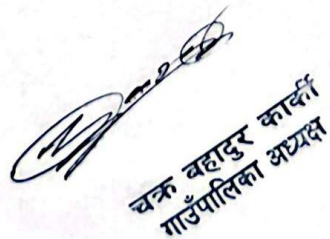 चक्र बहादुर कार्की
गाउँपालिका अध्यक्ष